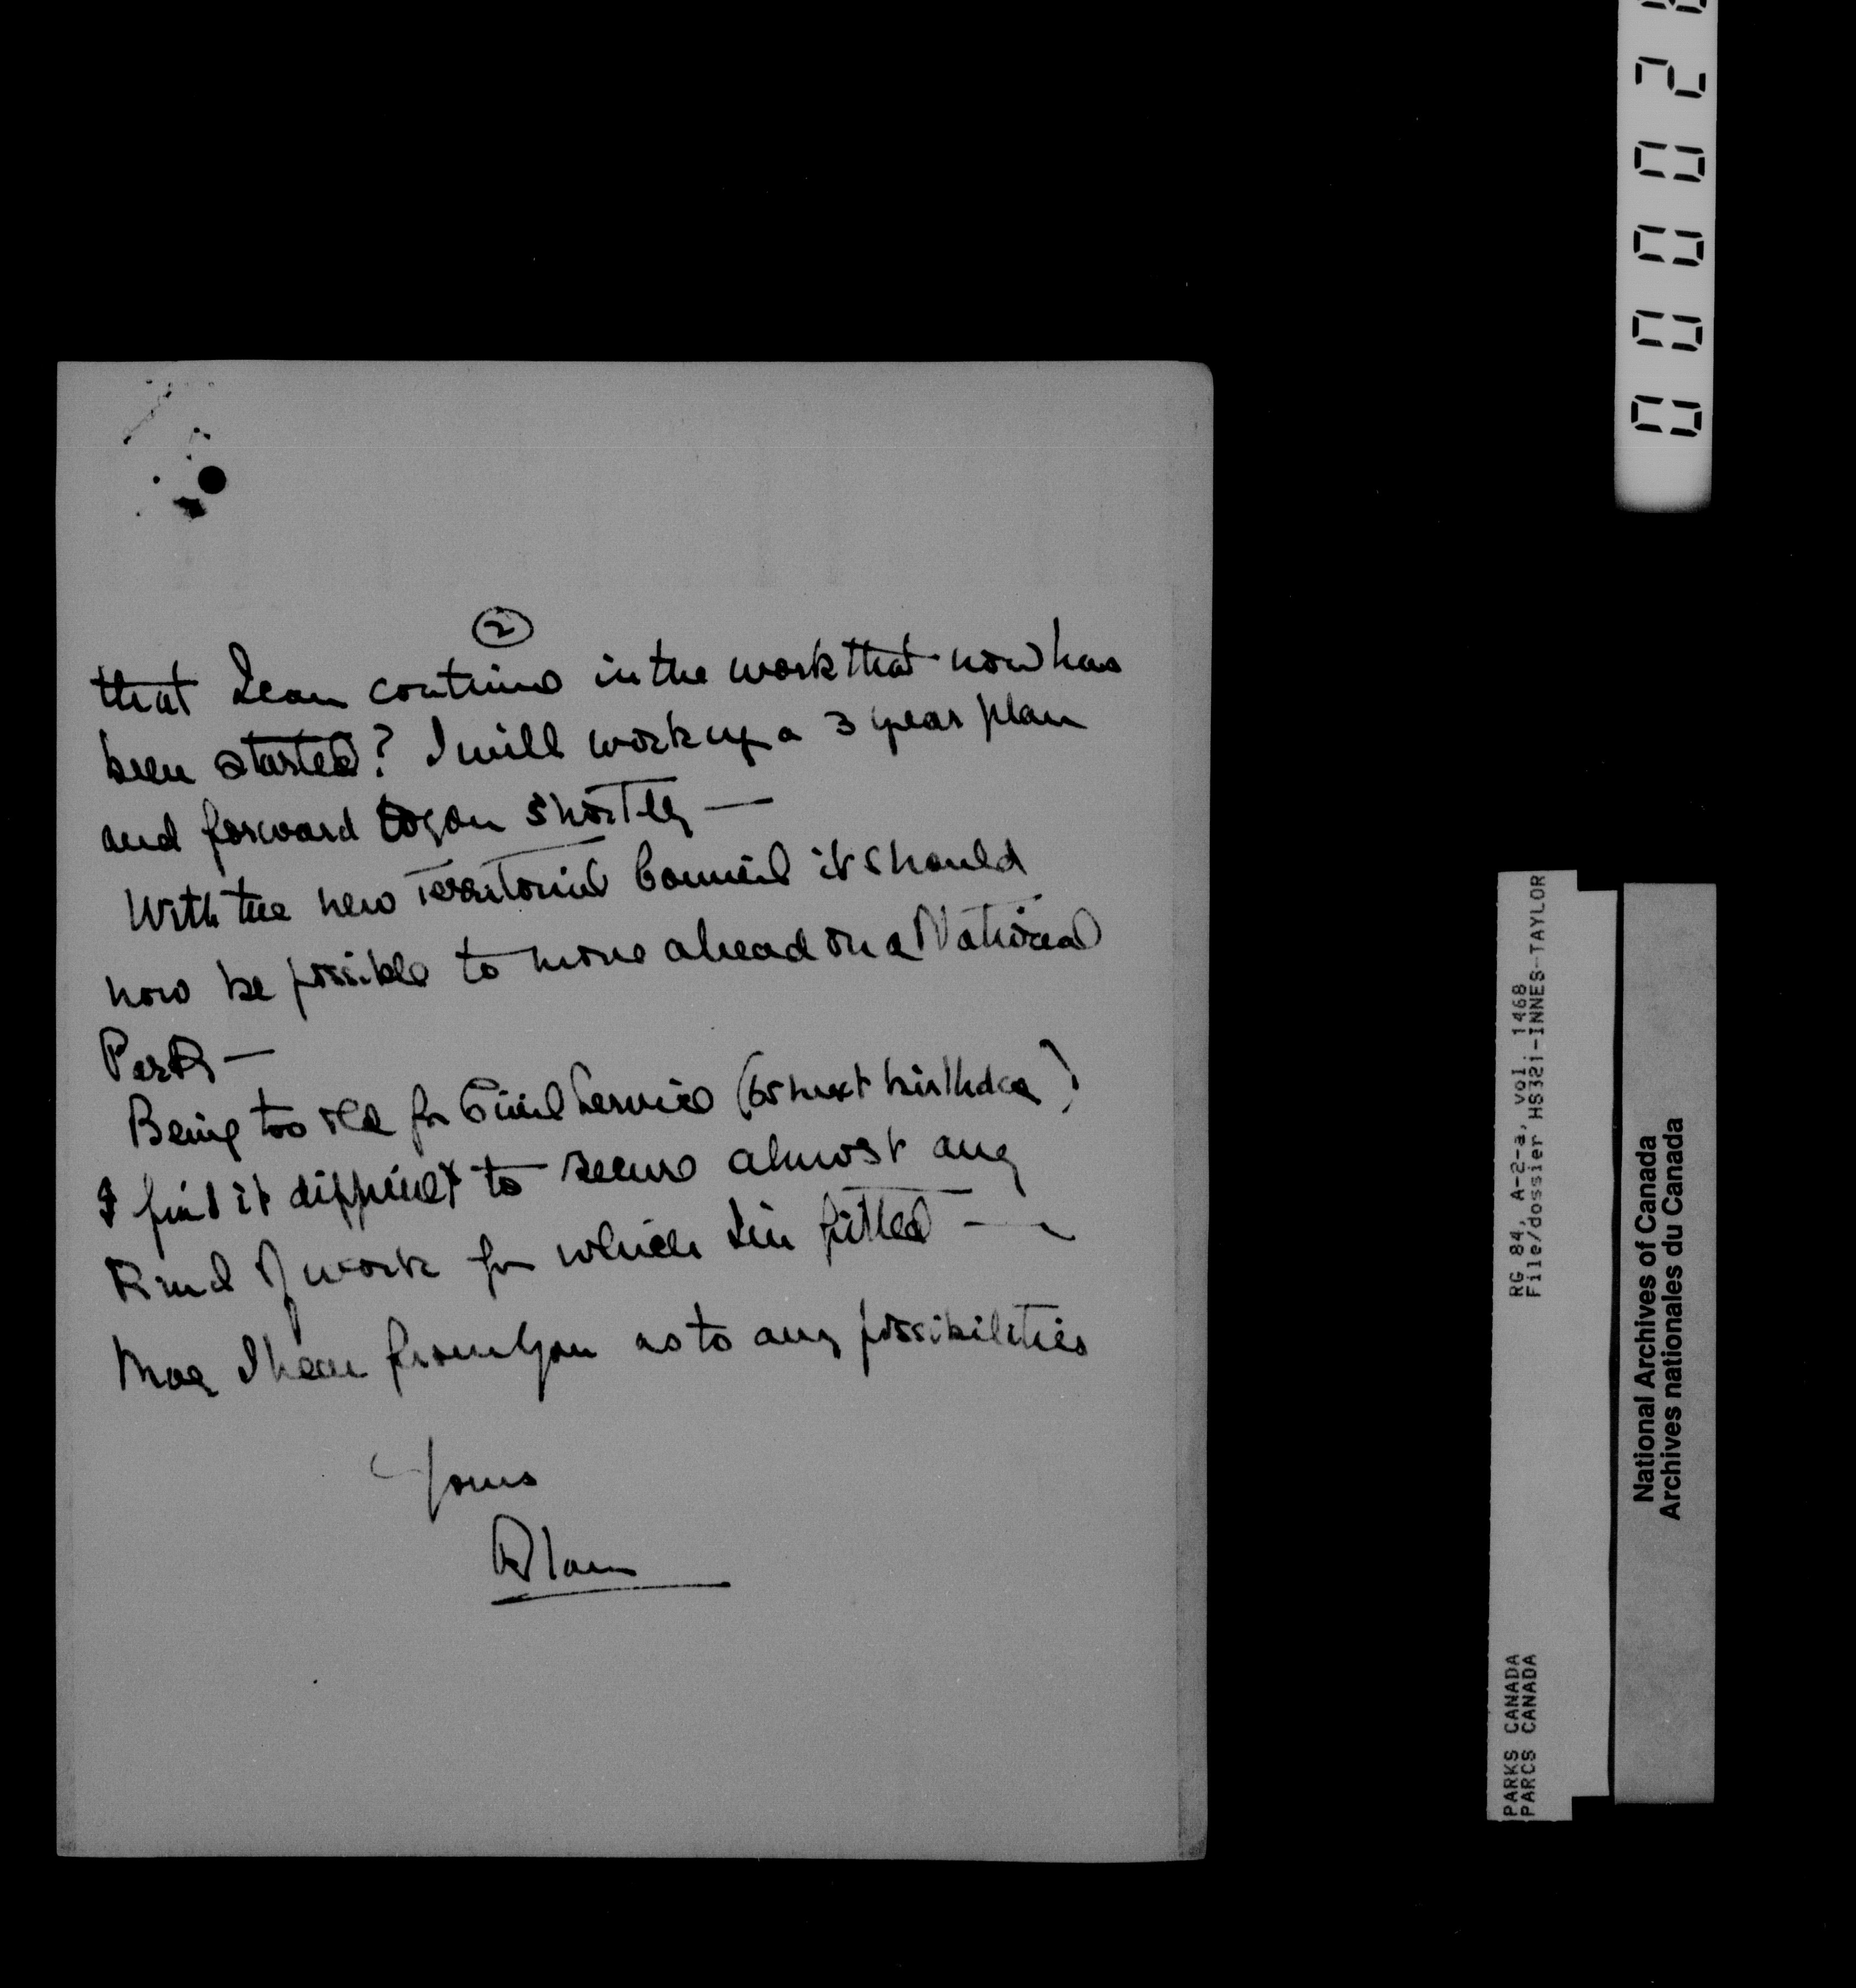 2
that I can continue in the work that now has
been started? I will work up a 3 year plan
and forward to you shortly —
With the new Territorial Council it should
now be possible to move ahead on a National
Park —
Being too old for Civil Service (65 next birthday)
I find it difficult to secure almost any
Kind of work for which I'm fitted —
May I hear from you as to any possibilities
Yours
Alan
00002
RG 84, A-2-a, vol. 1468
File/dossier HS321-INNES-TAYLOR
PARKS CANADA
PARCS CANADA
National Archives of Canada
Archives nationales du Canada